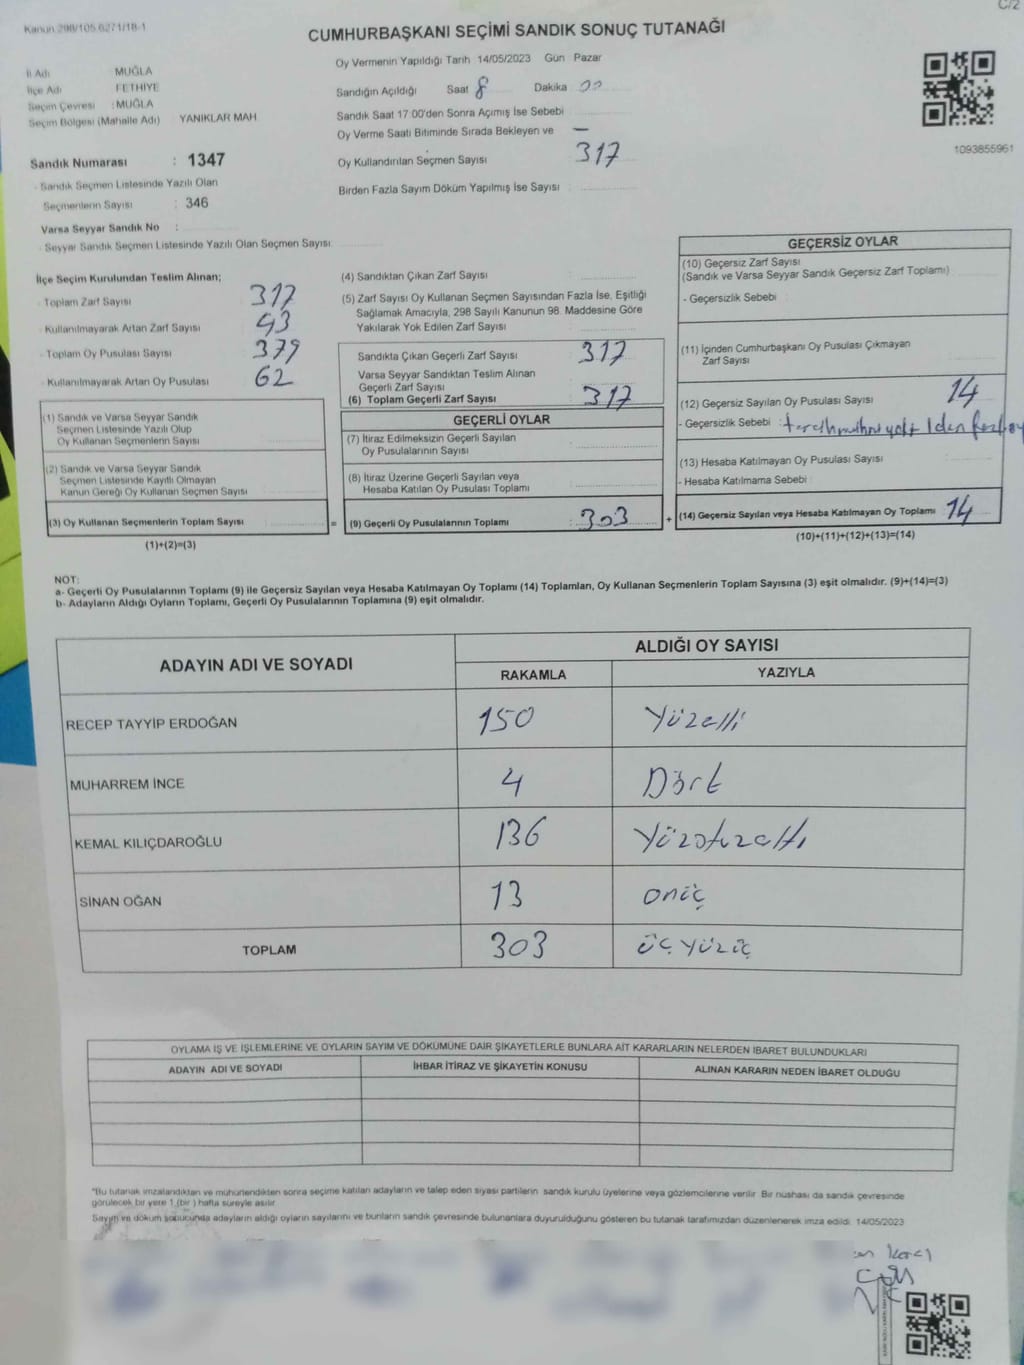 C/2
Kanun 298/105.6271/18-1
CUMHURBAŞKANI SEÇİMİ SANDIK SONUÇ TUTANAĞI
İl Adı MUĞLA
İlçe Adı FETHİYE
Seçim Çevresi : MUĞLA
Seçim Bölgesi (Mahalle Adı) YANIKLAR MAH
Sandık Numarası : 1347
- Sandık Seçmen Listesinde Yazılı Olan
Seçmenlerin Sayısı : 346
Varsa Seyyar Sandık No :
- Seyyar Sandık Seçmen Listesinde Yazılı Olan Seçmen Sayısı:
Oy Vermenin Yapıldığı Tarih 14/05/2023 Gün Pazar
Sandığın Açıldığı Saat 8 Dakika 00
Sandık Saat 17:00'den Sonra Açımış İse Sebebi
Oy Verme Saati Bitiminde Sırada Bekleyen ve —
Oy Kullandırılan Seçmen Sayısı 317
Birden Fazla Sayım Döküm Yapılmış İse Sayısı :
1093855961
İlçe Seçim Kurulundan Teslim Alınan;
- Toplam Zarf Sayısı 317
- Kullanılmayarak Artan Zarf Sayısı 43
- Toplam Oy Pusulası Sayısı 379
- Kullanılmayarak Artan Oy Pusulası 62
(1) Sandık ve Varsa Seyyar Sandık
Seçmen Listesinde Yazılı Olup
Oy Kullanan Seçmenlerin Sayısı
(2) Sandık ve Varsa Seyyar Sandık
Seçmen Listesinde Kayıtlı Olmayan
Kanun Gereği Oy Kullanan Seçmen Sayısı
(3) Oy Kullanan Seçmenlerin Toplam Sayısı =
(1)+(2)=(3)
(4) Sandıktan Çıkan Zarf Sayısı :
(5) Zarf Sayısı Oy Kullanan Seçmen Sayısından Fazla İse, Eşitliği
Sağlamak Amacıyla, 298 Sayılı Kanunun 98. Maddesine Göre
Yakılarak Yok Edilen Zarf Sayısı :
Sandıkta Çıkan Geçerli Zarf Sayısı : 317
Varsa Seyyar Sandıktan Teslim Alınan
Geçerli Zarf Sayısı
(6) Toplam Geçerli Zarf Sayısı : 317
GEÇERLİ OYLAR
(7) İtiraz Edilmeksizin Geçerli Sayılan
Oy Pusulalarının Sayısı :
(8) İtiraz Üzerine Geçerli Sayılan veya
Hesaba Katılan Oy Pusulası Toplamı :
(9) Geçerli Oy Pusulalarının Toplamı : 303 +
GEÇERSİZ OYLAR
(10) Geçersiz Zarf Sayısı
(Sandık ve Varsa Seyyar Sandık Geçersiz Zarf Toplamı)
- Geçersizlik Sebebi :
(11) İçinden Cumhurbaşkanı Oy Pusulası Çıkmayan
Zarf Sayısı
(12) Geçersiz Sayılan Oy Pusulası Sayısı : 14
- Geçersizlik Sebebi :
(13) Hesaba Katılmayan Oy Pusulası Sayısı :
- Hesaba Katılmama Sebebi :
(14) Geçersiz Sayılan veya Hesaba Katılmayan Oy Toplamı : 14
(10)+(11)+(12)+(13)=(14)
NOT:
a- Geçerli Oy Pusulalarının Toplamı (9) ile Geçersiz Sayılan veya Hesaba Katılmayan Oy Toplamı (14) Toplamları, Oy Kullanan Seçmenlerin Toplam Sayısına (3) eşit olmalıdır. (9)+(14)=(3)
b- Adayların Aldığı Oyların Toplamı, Geçerli Oy Pusulalarının Toplamına (9) eşit olmalıdır.
ADAYIN ADI VE SOYADI ALDIĞI OY SAYISI
RAKAMLA YAZIYLA
RECEP TAYYİP ERDOĞAN 150 Yüzelli
MUHARREM İNCE 4 Dört
KEMAL KILIÇDAROĞLU 136 Yüzotuzaltı
SİNAN OĞAN 13 onüç
TOPLAM 303 üçyüzüç
OYLAMA İŞ VE İŞLEMLERİNE VE OYLARIN SAYIM VE DÖKÜMÜNE DAİR ŞİKAYETLERLE BUNLARA AİT KARARLARIN NELERDEN İBARET BULUNDUKLARI
ADAYIN ADI VE SOYADI İHBAR İTİRAZ VE ŞİKAYETİN KONUSU ALINAN KARARIN NEDEN İBARET OLDUĞU
"Bu tutanak imzalandıktan ve mühürlendikten sonra seçime katılan adayların ve talep eden siyasi partilerin sandık kurulu üyelerine veya gözlemcilerine verilir. Bir nüshası da sandık çevresinde
görülecek bir yere 1 (bir) hafta süreyle asılır.
Sayım ve döküm sonucunda adayların aldığı oyların sayılarını ve bunların sandık çevresinde bulunanlara duyurulduğunu gösteren bu tutanak tarafımızdan düzenlenerek imza edildi. 14/05/2023